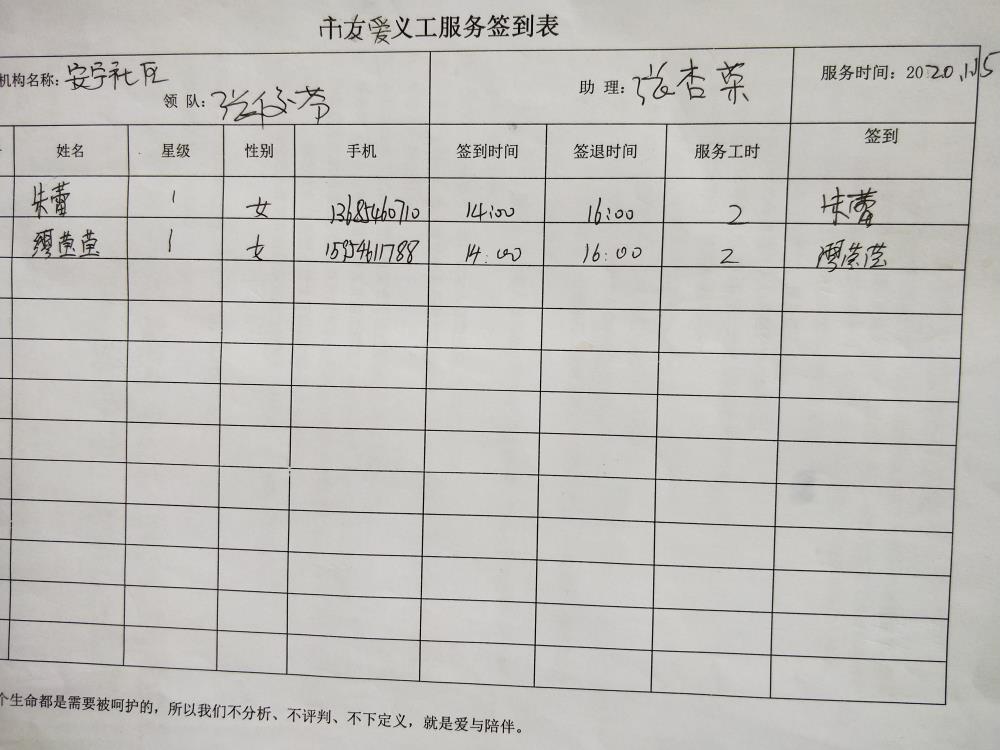 市友爱义工服务签到表
机构名称：安宁社区
领 队：张 芳
助 理：张杏荣
服务时间：2020.1.15
姓名 星级 性别 手机 签到时间 签退时间 服务工时 签到
朱蕾 1 女 13685460710 14:00 16:00 2 朱蕾
缪莹莹 1 女 15954611788 14:00 16:00 2 缪莹莹
个生命都是需要被呵护的，所以我们不分析、不评判、不下定义，就是爱与陪伴。